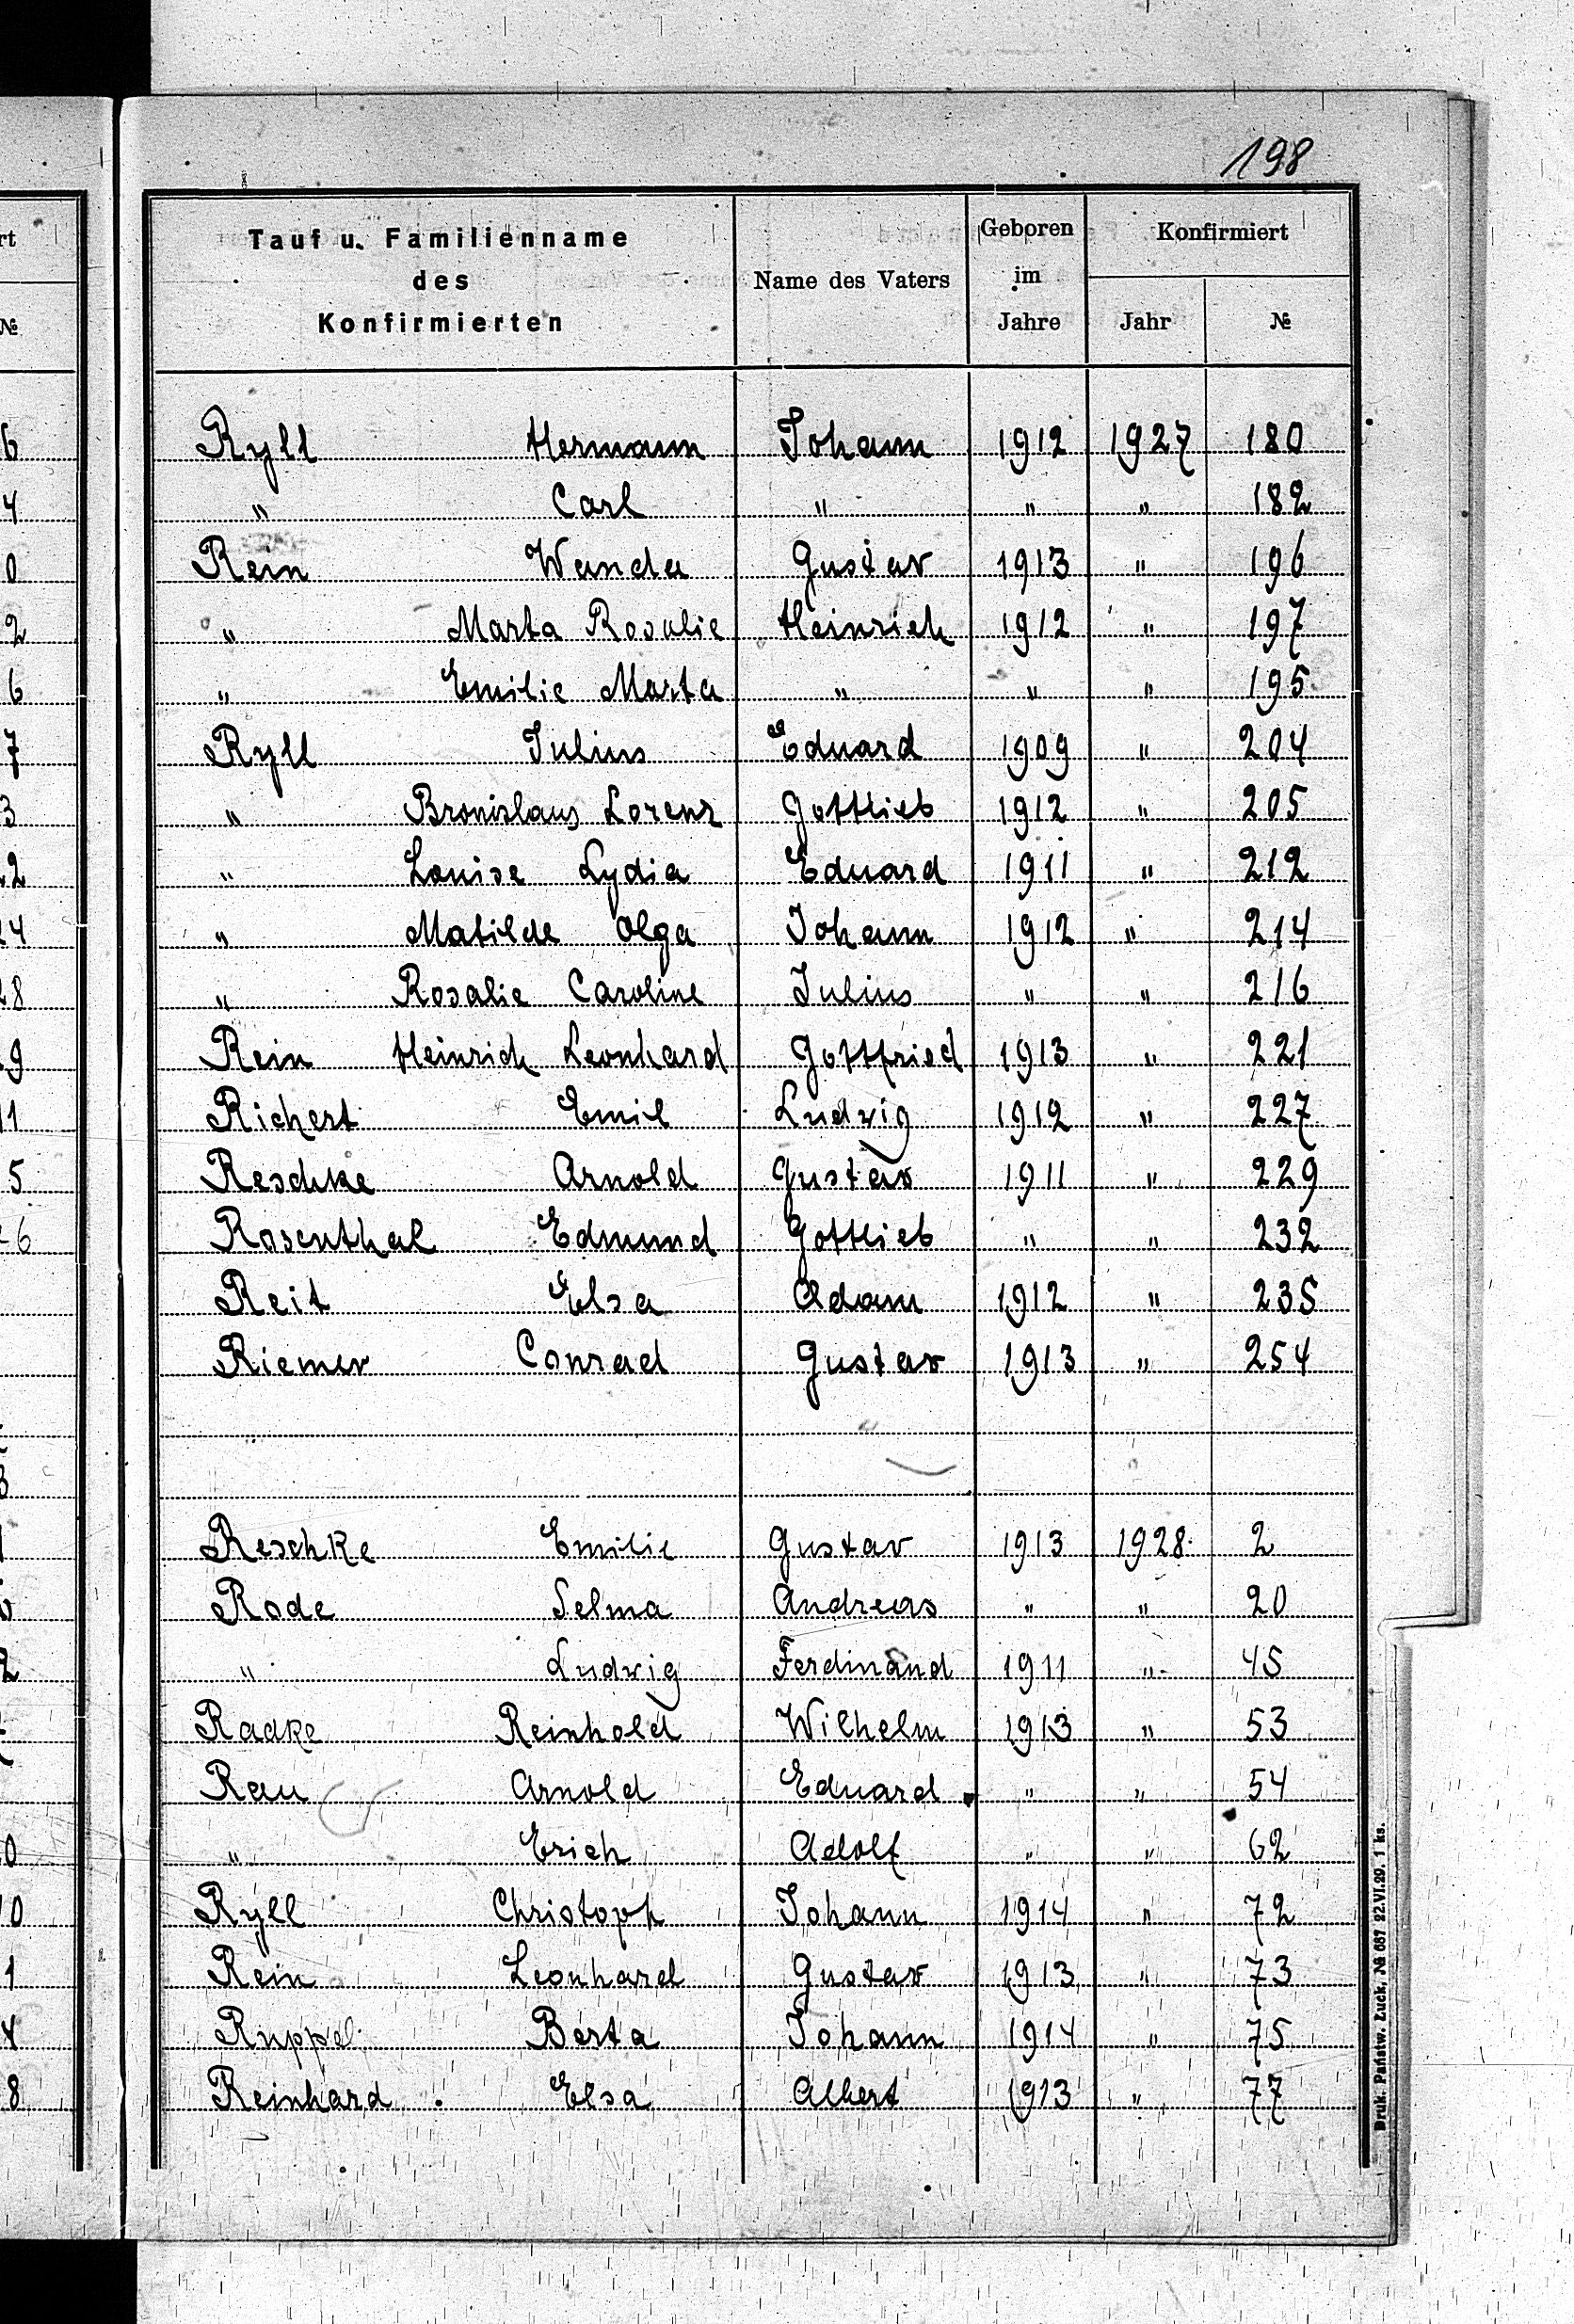 198
Tauf u. Familienname
des
Konfirmierten
Name des Vaters
Geboren
im
Jahre
Konfirmiert
Jahr
№
Ryll Hermann Johann 1912 1927 180
" Carl " " " 182
Rein Wanda Gustav 1913 " 196
" Marta Rosalie Heinrich 1912 " 197
" Emilie Marta " " " 195
Ryll Julius Eduard 1909 " 204
" Bronislaus Lorenz Gottlieb 1912 " 205
" Louise Lydia Eduard 1911 " 212
" Matilde Olga Johann 1912 " 214
" Rosalie Caroline Julius " " 216
Rein Heinrich Leonhard Gottfried 1913 " 221
Richert Emil Ludwig 1912 " 227
Reschke Arnold Gustav 1911 " 229
Rosenthal Edmund Gottlieb " " 232
Reit Elsa Adam 1912 " 235
Riemer Conrad Gustav 1913 " 254
Reschke Emilie Gustav 1913 1928 2
Rode Selma Andreas " " 20
" Ludwig Ferdinand 1911 " 45
Radke Reinhold Wilhelm 1913 " 53
Rau Arnold Eduard " " 54
" Erich Adolf " " 62
Ryll Christoph Johann 1914 " 72
Rein Leonhard Gustav 1913 " 73
Ruppel Berta Johann 1914 " 75
Reinhard Elsa Albert 1913 " 77
Druk. Państw. Łuck, № 687 22.VI.29. 1 ks.